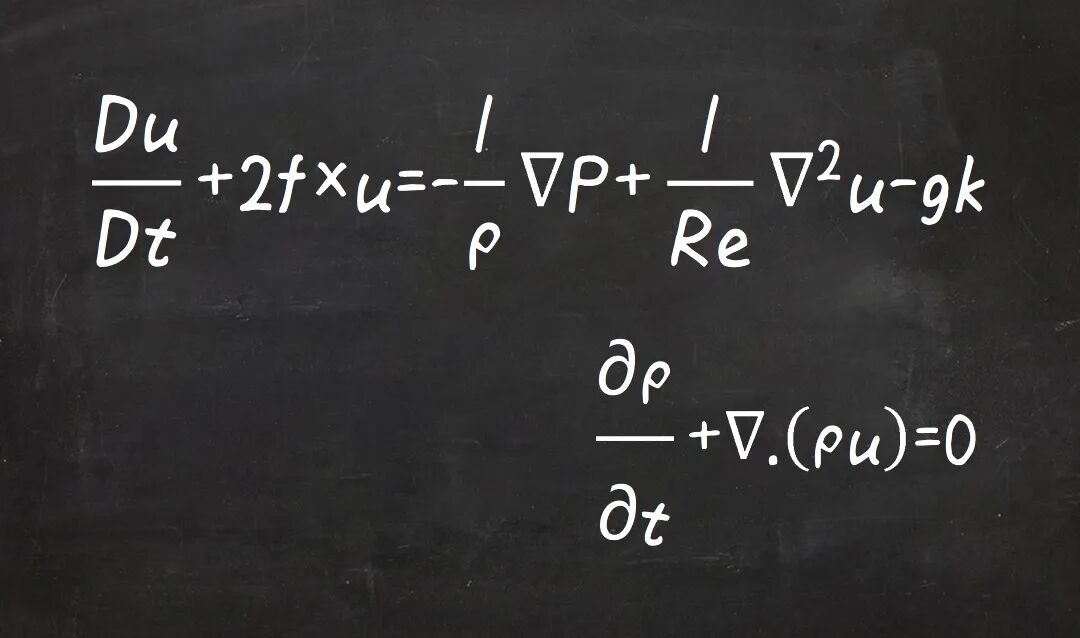 Du/Dt +2f×u=-1/ρ ∇P+ 1/Re ∇²u-gk
∂ρ/∂t +∇.(ρu)=0